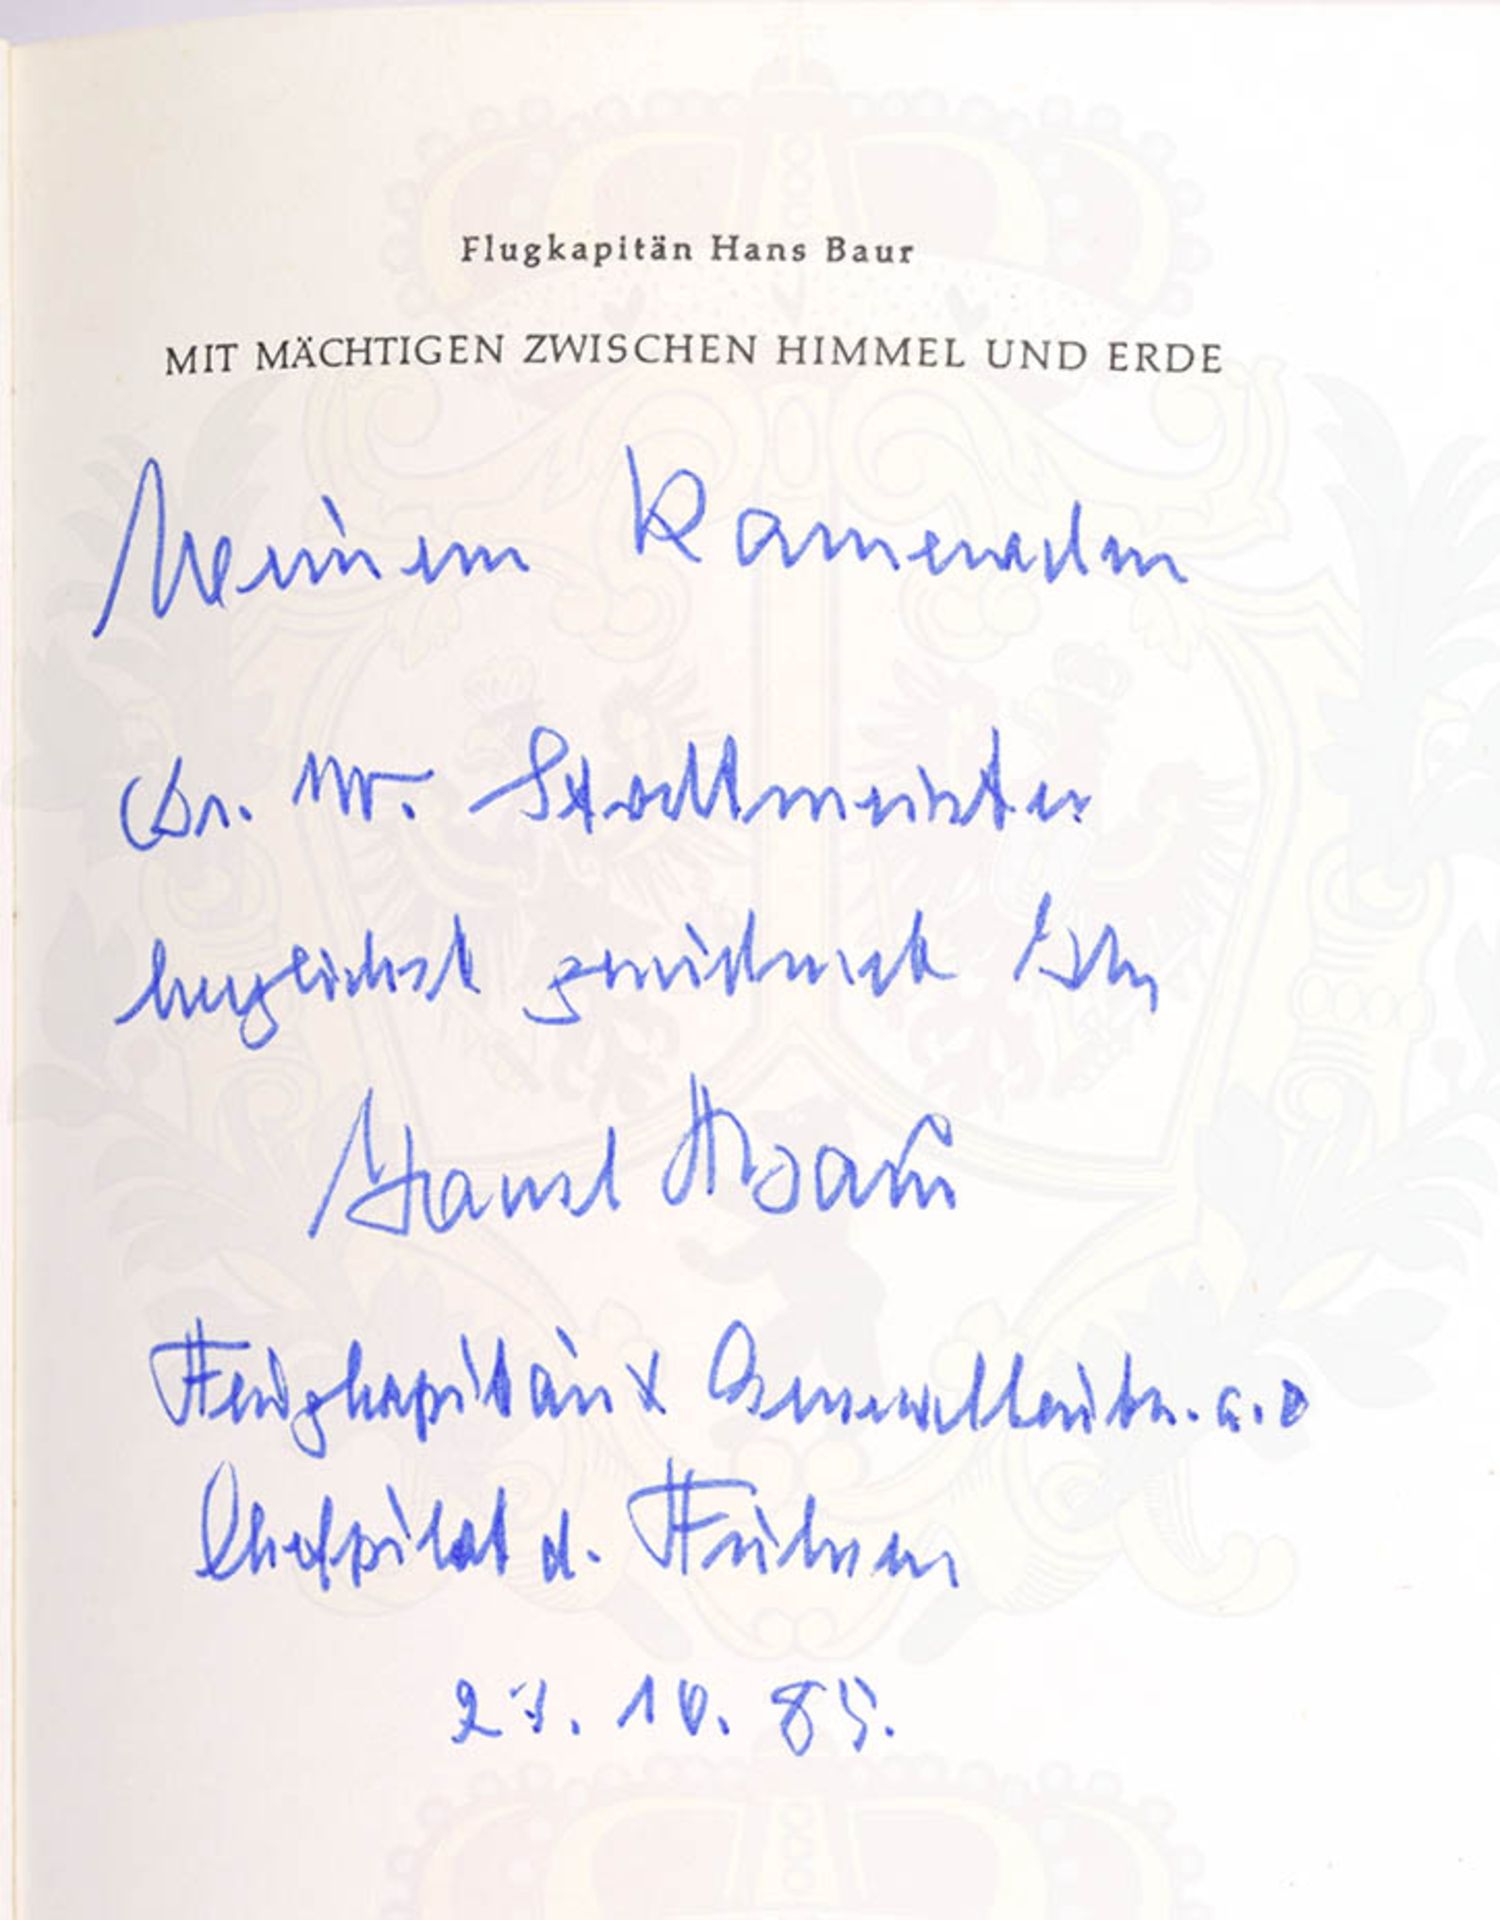 Flugkapitän Hans Baur
MIT MÄCHTIGEN ZWISCHEN HIMMEL UND ERDE
Meinem Kameraden
Dr. W. Stadtmeister
herzlichst gewidmet Ihr
Hansl Baur
Flugkapitän & Generalleutn. a. D
Chefpilot d. Führers
27. 10. 85.